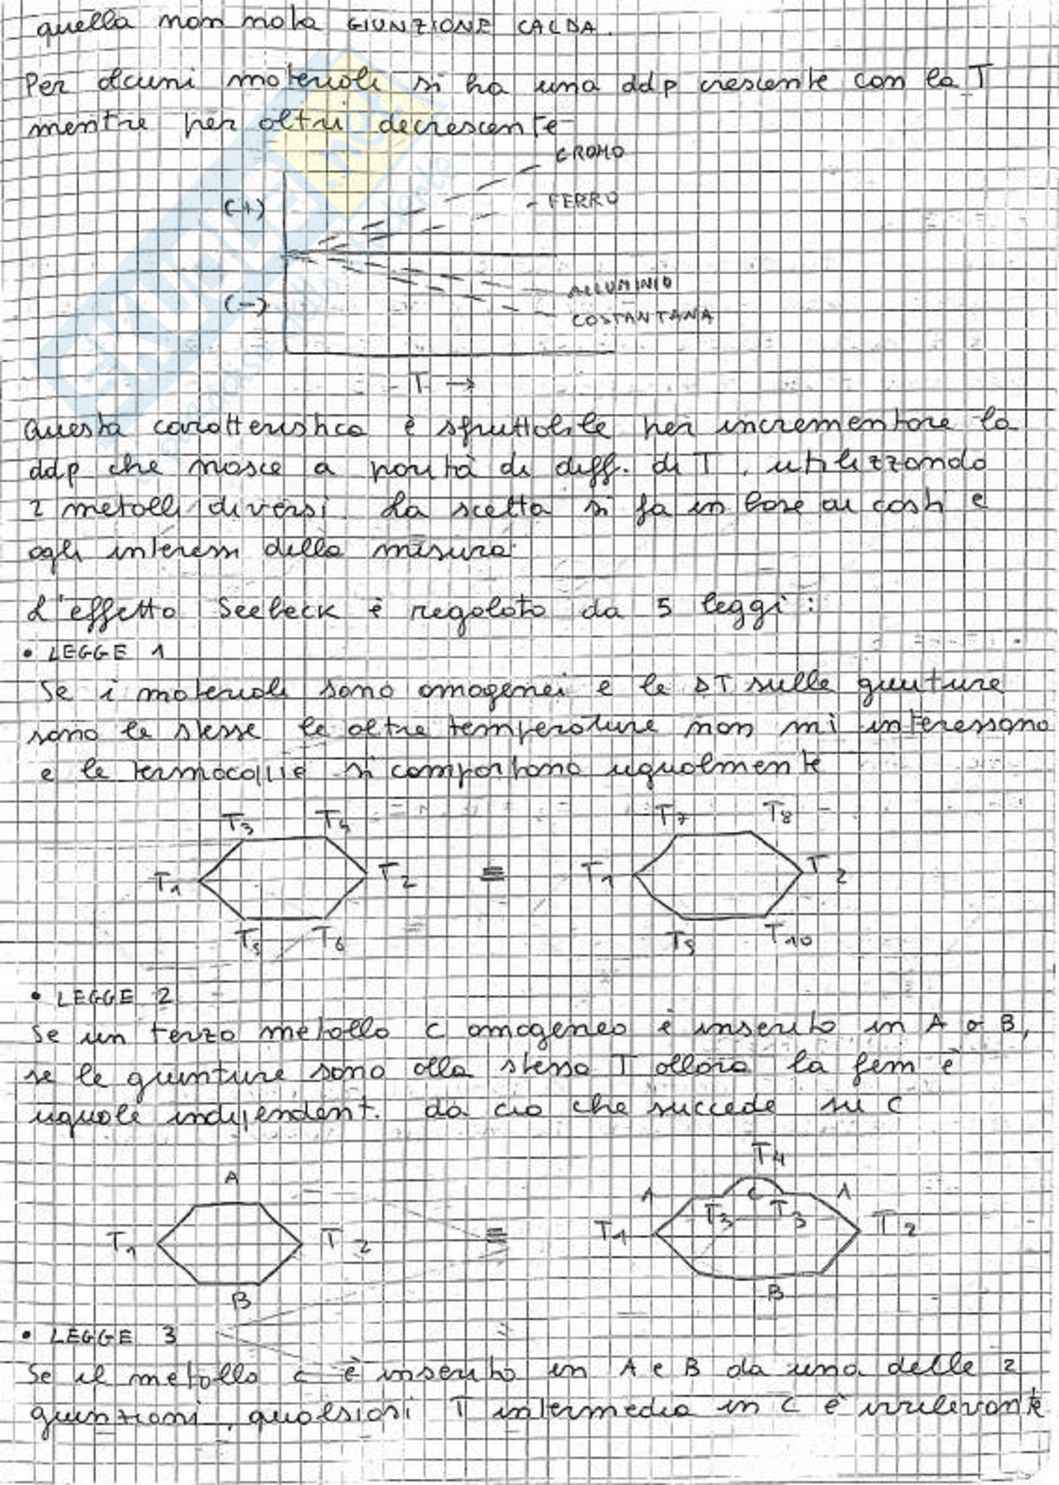 quella non nota GIUNZIONE CALDA.
Per alcuni materiali si ha una ddp crescente con la T
mentre per altri decrescente
CROMO
(+)
FERRO
(-)
ALLUMINIO
COSTANTANA
T →
Questa caratteristica è sfruttabile per incrementare la
ddp che nasce a parità di diff. di T, utilizzando
2 metalli diversi. La scelta si fa in base ai costi e
agli interessi della misura.
L'effetto Seebeck è regolato da 5 leggi:
• LEGGE 1
Se i materiali sono omogenei e le ΔT sulle giunture
sono le stesse le altre temperature non mi interessano
e le termocoppie si comportano ugualmente
T3 T4 T7 T8
T1 T2 ≡ T1 T2
T5 T6 T9 T10
• LEGGE 2
Se un terzo metallo C omogeneo è inserito in A o B,
se le giunture sono alla stessa T allora la fem è
uguale indipendent. da ciò che succede su C
T4
A A C A
T3 T3
T1 T2 ≡ T1 T2
B B
• LEGGE 3
Se il metallo C è inserito in A e B da una delle 2
giunzioni, qualsiasi T intermedia in C è irrilevante